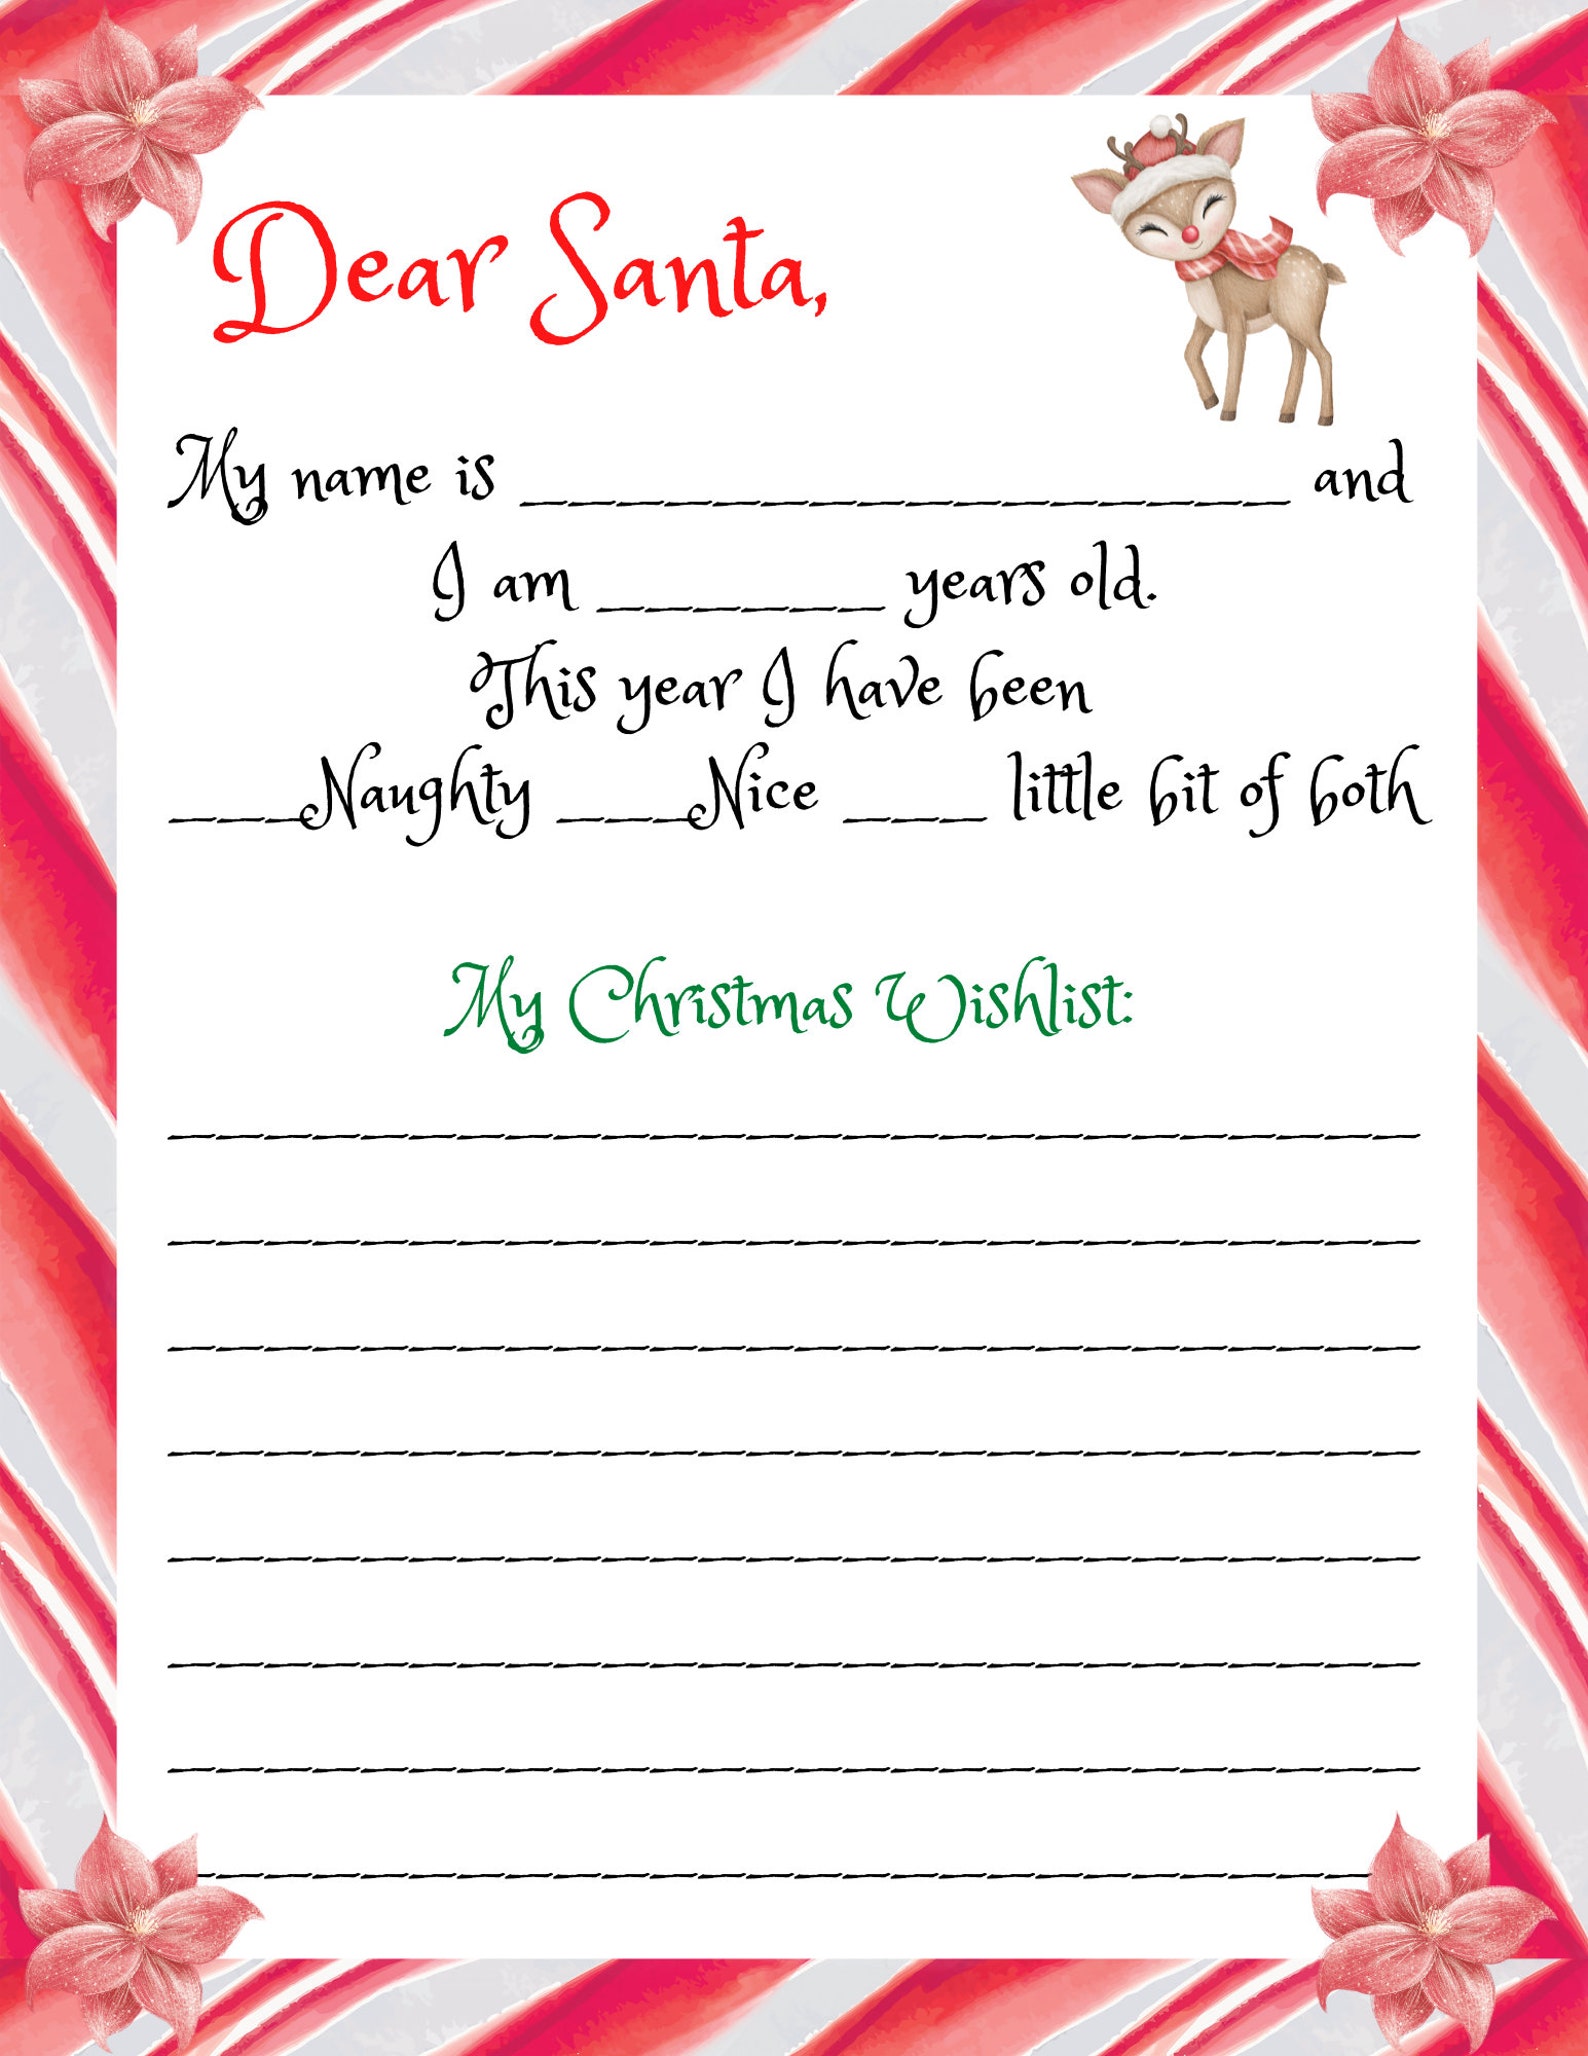 Dear Santa,
My name is ________________ and
I am ______ years old.
This year I have been
___Naughty ___Nice ___ little bit of both
My Christmas Wishlist:
__________________________
__________________________
__________________________
__________________________
__________________________
__________________________
__________________________
_________________________